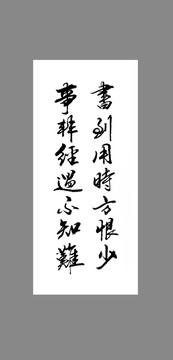 書到用時方恨少
事非經過不知難